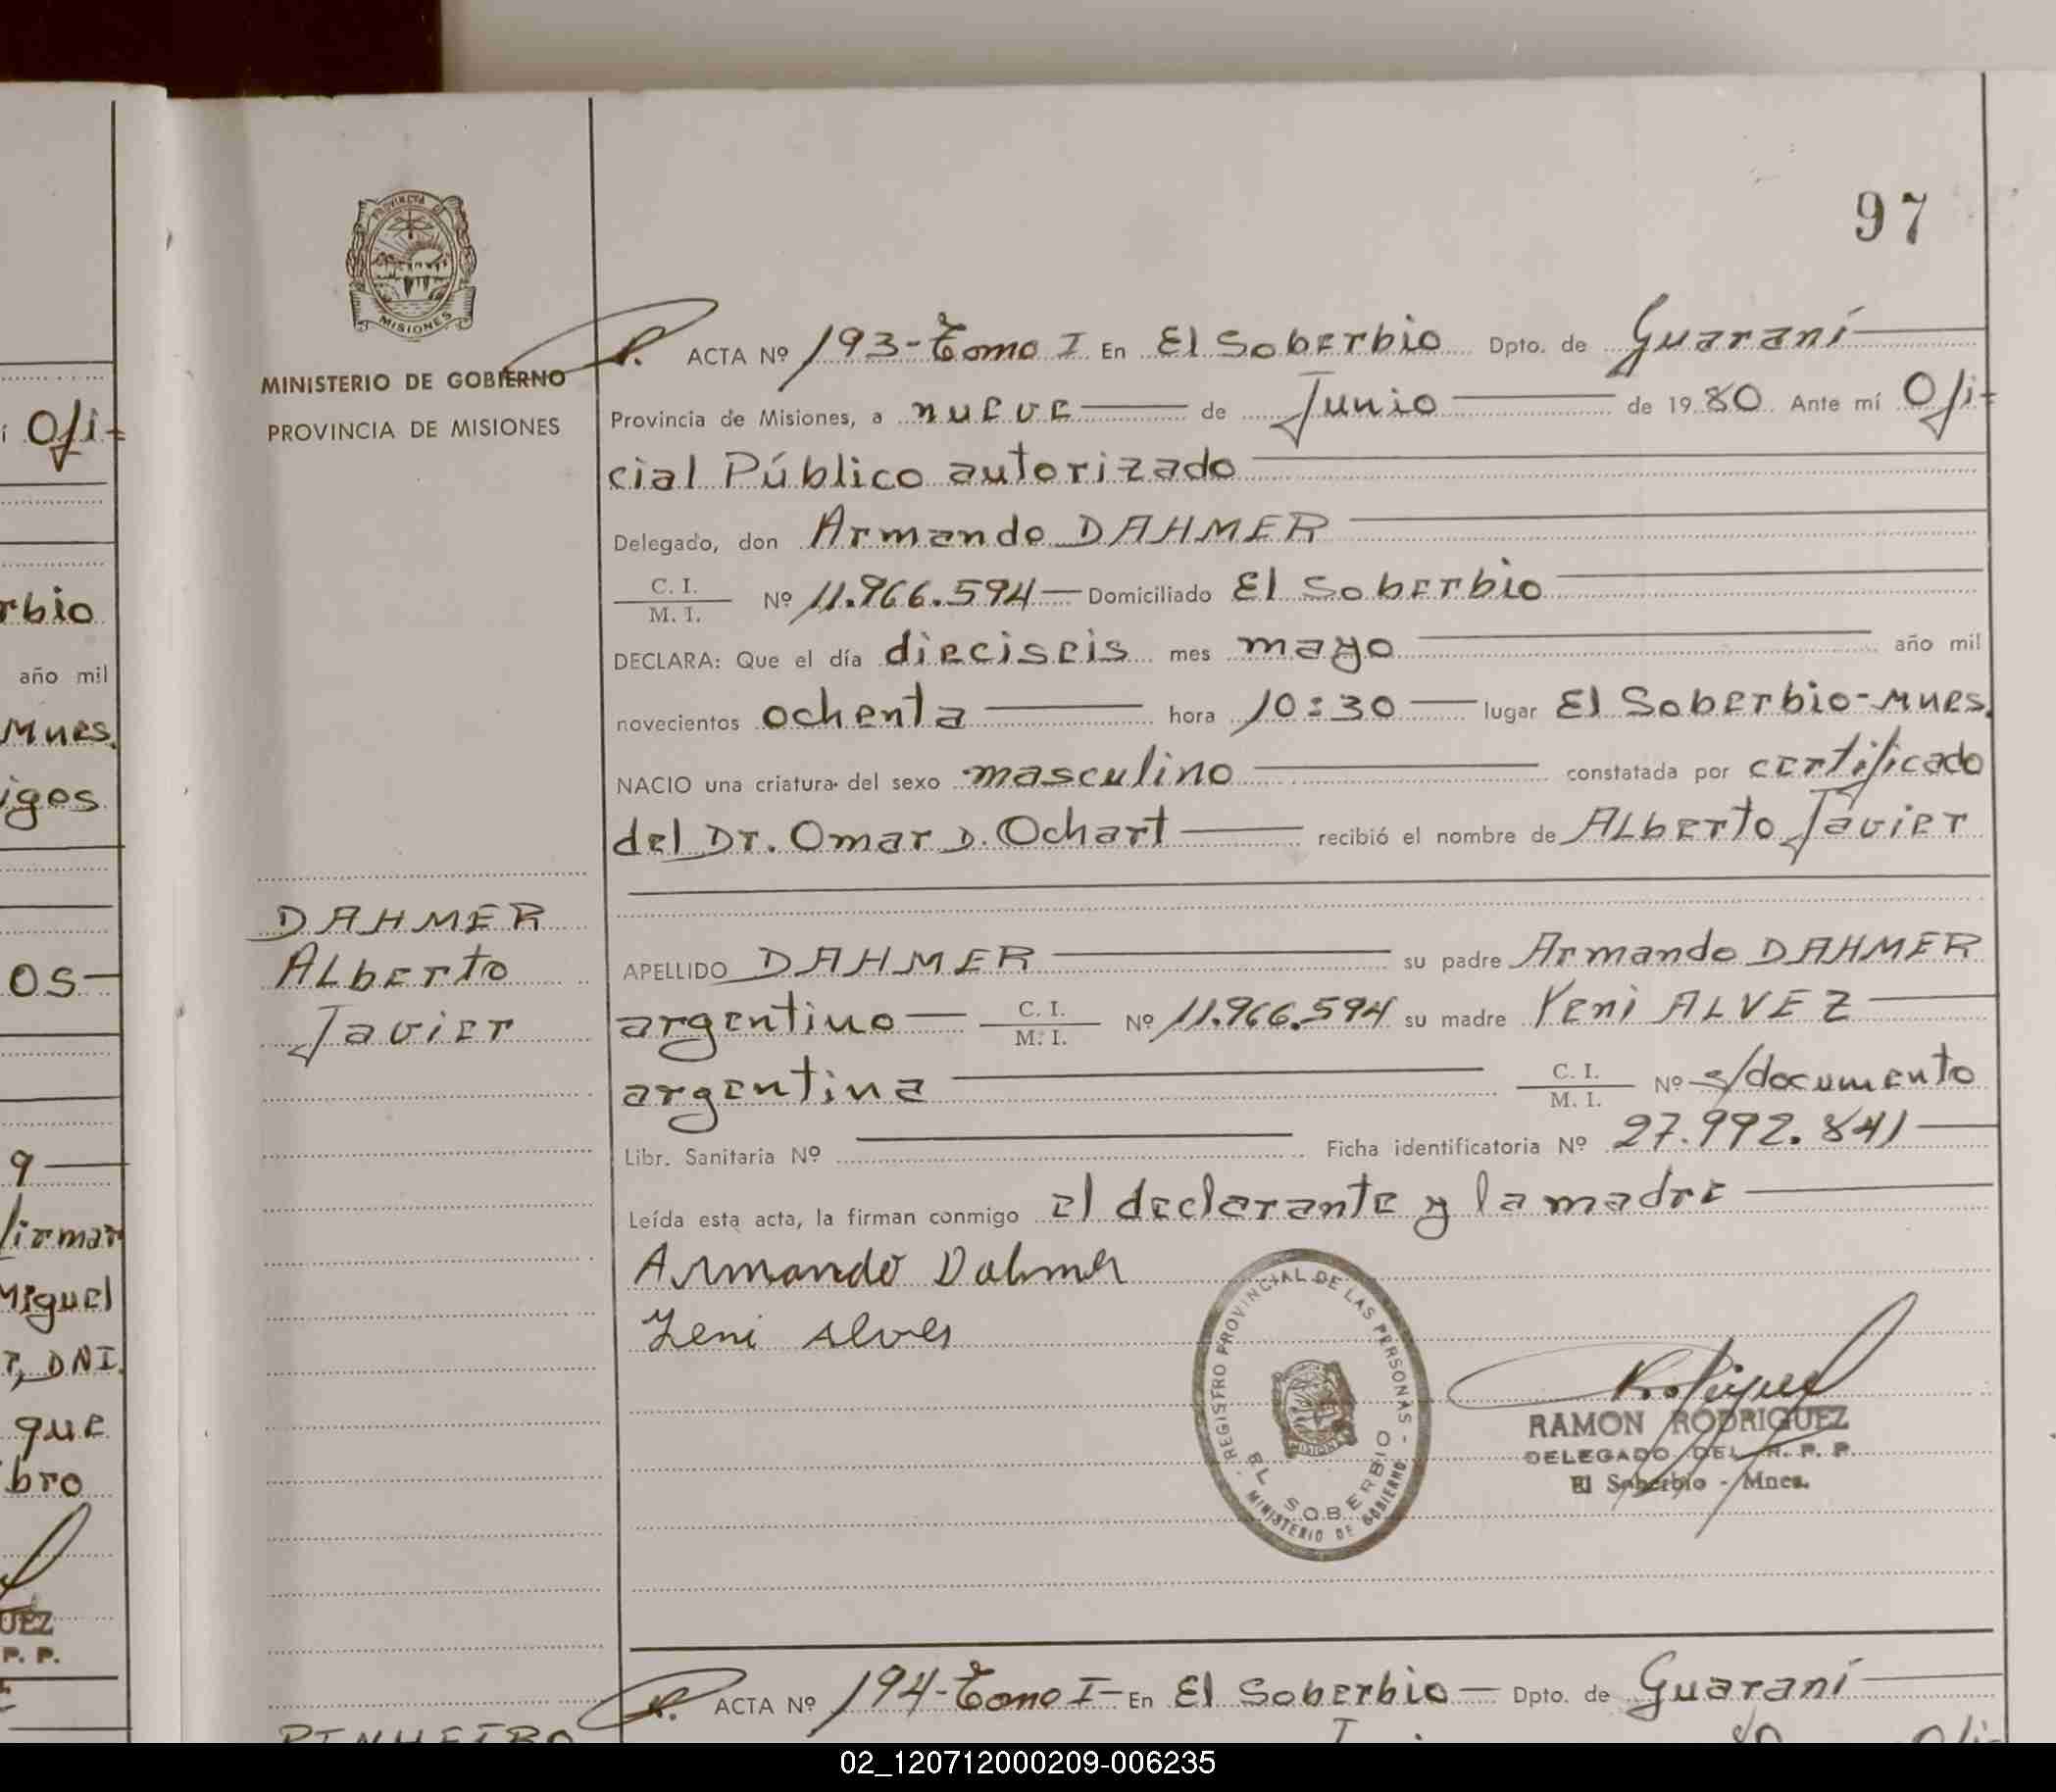 97
PROVINCIA DE
MISIONES
MINISTERIO DE GOBIERNO
PROVINCIA DE MISIONES
ACTA Nº 193-Tomo I En El Soberbio Dpto. de Guaraní
Provincia de Misiones, a nueve de Junio de 1980 Ante mí Ofi-
cial Público autorizado
Delegado, don Armando DAHMER
C. I.
M. I. Nº 11.966.594 Domiciliado El Soberbio
DECLARA: Que el día dieciseis mes mayo año mil
novecientos ochenta hora 10:30 lugar El Soberbio-Mnes.
NACIO una criatura del sexo masculino constatada por certificado
del Dr. Omar D. Ochart recibió el nombre de ALberto Javier
DAHMER
ALberto
Javier
APELLIDO DAHMER su padre Armando DAHMER
argentino C. I.
M. I. Nº 11.966.594 su madre Yeni ALVEZ
argentina C. I.
M. I. Nº s/documento
Libr. Sanitaria Nº Ficha identificatoria Nº 27.992.841
Leída esta acta, la firman conmigo el declarante y la madre
Armando Dahmer
Yeni Alves
REGISTRO PROVINCIAL DE LAS PERSONAS
EL SOBERBIO
MINISTERIO DE GOBIERNO
RAMON RODRIGUEZ
DELEGADO DEL R. P. P.
El Soberbio - Mnes.
ACTA Nº 194-Tomo I En El Soberbio Dpto. de Guaraní
PINHEIRO
Ofi-
rbio
año mil
Mnes.
igos
os
9
firman
Miguel
r, DNI.
que
bro
UEZ
P. P.
02_120712000209-006235